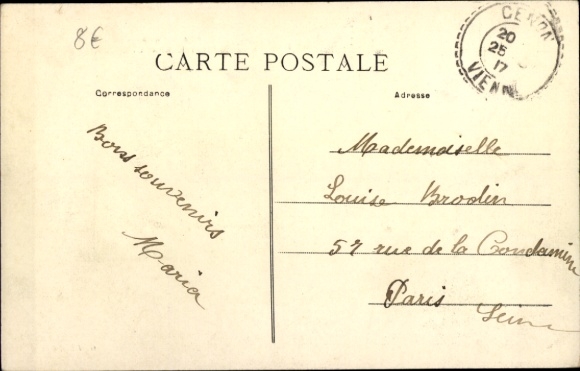 8€
CENON
20
25
17
VIENN
CARTE POSTALE
Correspondance
Adresse
Bons souvenirs
Maria
Mademoiselle
Louise Brodin
57 rue de la Condamine
Paris
Seine